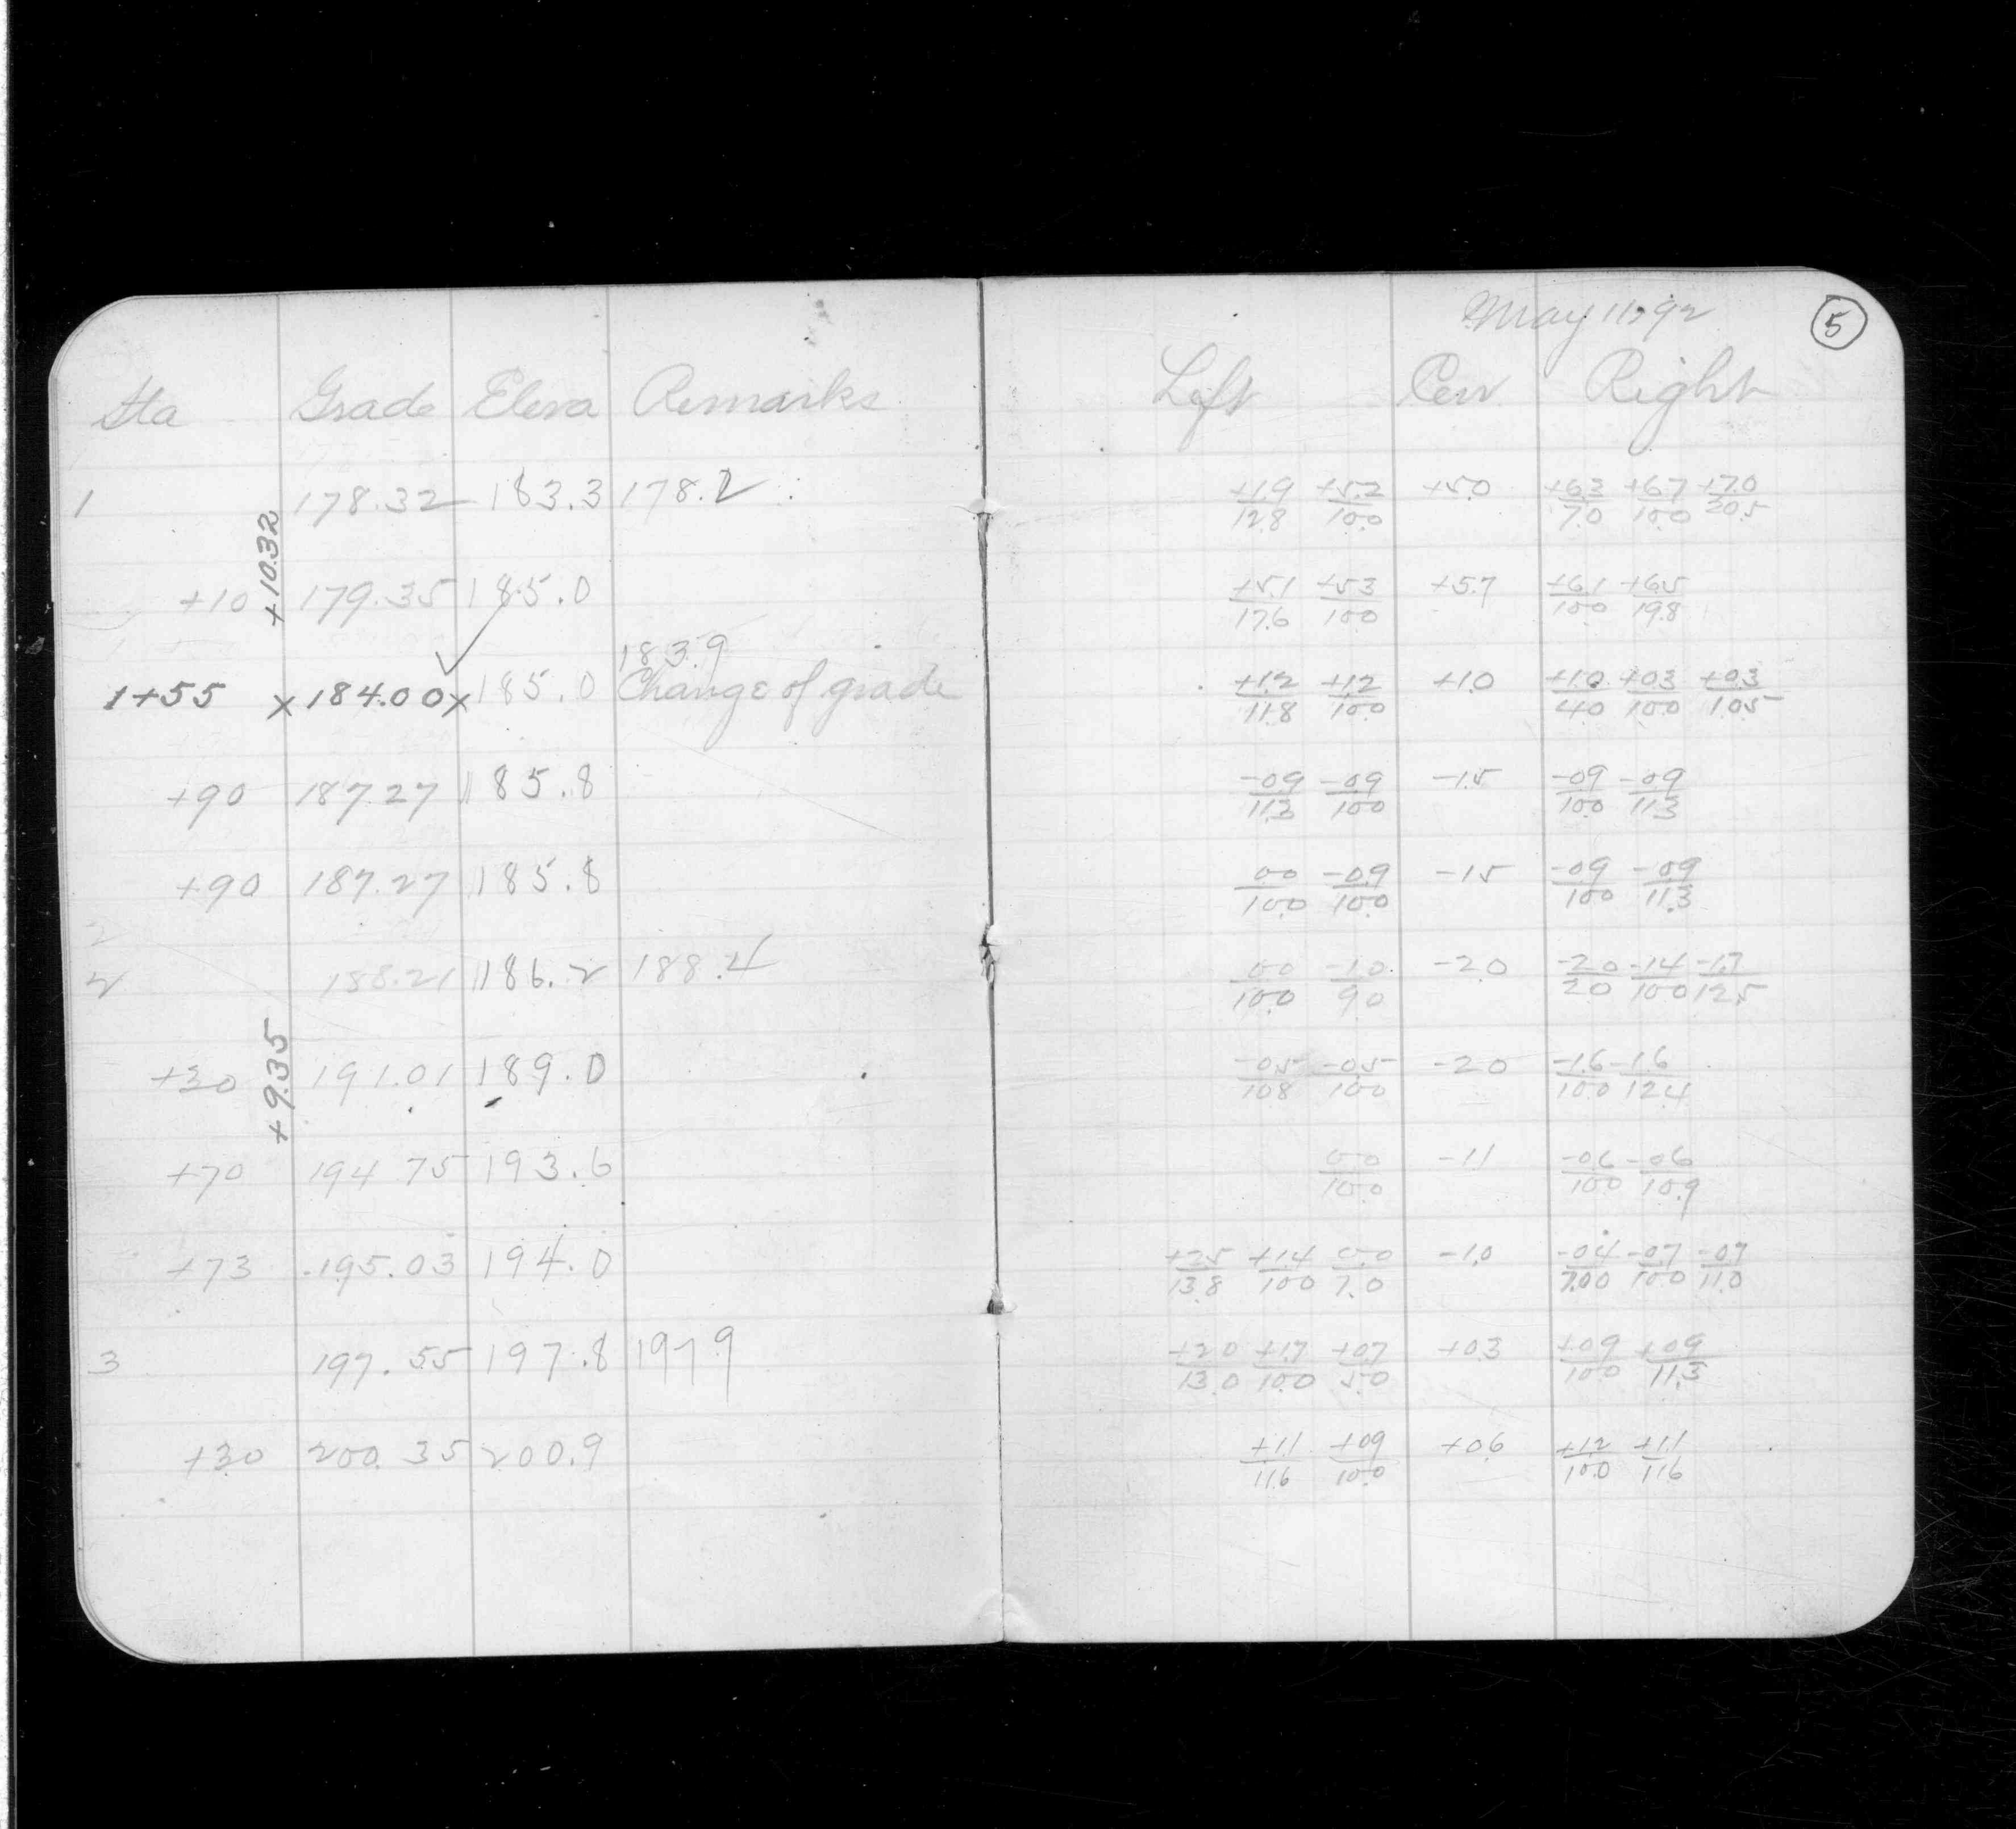 May 11, 92
5
Sta Grade Eleva Remarks Left Cen Right
1 178.32 183.3 178.2 +1.9/12.8 +5.2/10.0 +5.0 +6.3/7.0 +6.7/10.0 +7.0/20.5
+10.32
+10 179.35 185.0 +5.1/17.6 +5.3/10.0 +5.7 +6.1/10.0 +6.5/19.8
183.9
1+55 x 184.00 x 185.0 Change of grade +1.2/11.8 +1.2/10.0 +1.0 +1.0/4.0 +0.3/10.0 +0.3/10.5
+90 187.27 185.8 -0.9/11.3 -0.9/10.0 -1.5 -0.9/10.0 -0.9/11.3
+90 187.27 185.8 0.0/10.0 -0.9/10.0 -1.5 -0.9/10.0 -0.9/11.3
2
2 188.21 186.2 188.4 0.0/10.0 -1.0/9.0 -2.0 -2.0/2.0 -1.4/10.0 -1.7/12.5
+9.35
+30 191.01 189.0 -0.5/10.8 -0.5/10.0 -2.0 -1.6/10.0 -1.6/12.4
+70 194.75 193.6 0.0/10.0 -1.1 -0.6/10.0 -0.6/10.9
+73 195.03 194.0 +2.5/13.8 +1.4/10.0 0.0/7.0 -1.0 -0.4/7.00 -0.7/10.0 -0.7/11.0
3 197.55 197.8 197.9 +2.0/13.0 +1.7/10.0 +0.7/5.0 +0.3 +0.9/10.0 +0.9/11.3
+30 200.35 200.9 +1.1/11.6 +0.9/10.0 +0.6 +1.2/10.0 +1.1/11.6